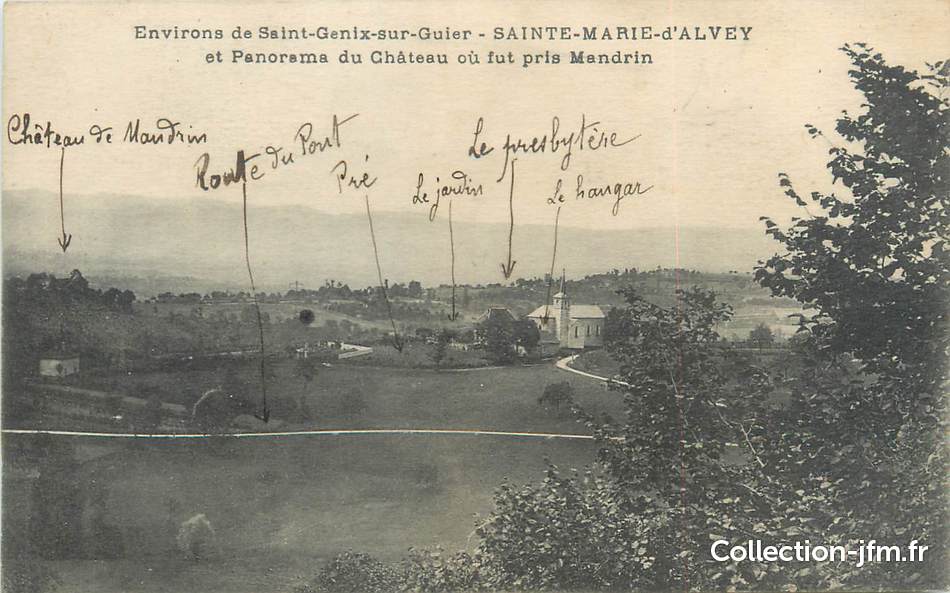 Environs de Saint-Genix-sur-Guier - SAINTE-MARIE-d'ALVEY
et Panorama du Château où fut pris Mandrin
Château de Mandrin
Route du Pont
Pré
Le jardin
Le presbytère
Le hangar
Collection-jfm.fr